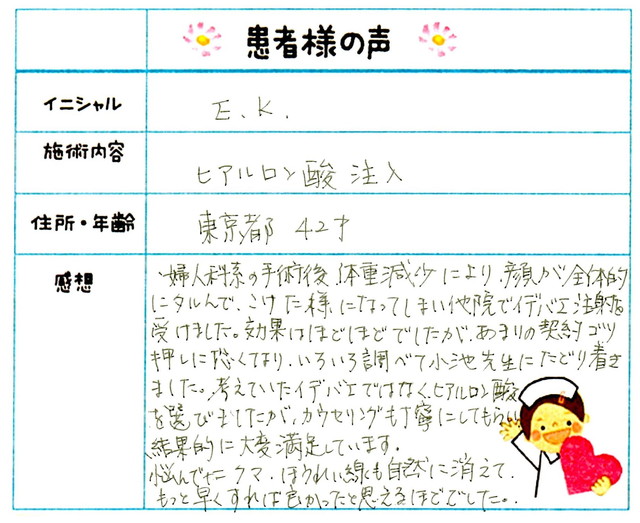 患者様の声
イニシャル
E.K.
施術内容
ヒアルロン酸 注入
住所・年齢
東京都 42才
感想
婦人科系の手術後、体重減少により、顔が全体的
にタルんで、こけた様になってしまい他院でイデバエ注射を
受けました。効果はほどほどでしたが、あまりの契約ゴリ
押しに恐くなり、いろいろ調べて小池先生にたどり着き
ました。考えていたイデバエではなく、ヒアルロン酸
を選びましたが、カウセリングも丁寧にしてもらい
結果的に大変満足しています。
悩んでたクマ、ほうれい線も自然に消えて、
もっと早くすれば良かったと思えるほどでした。